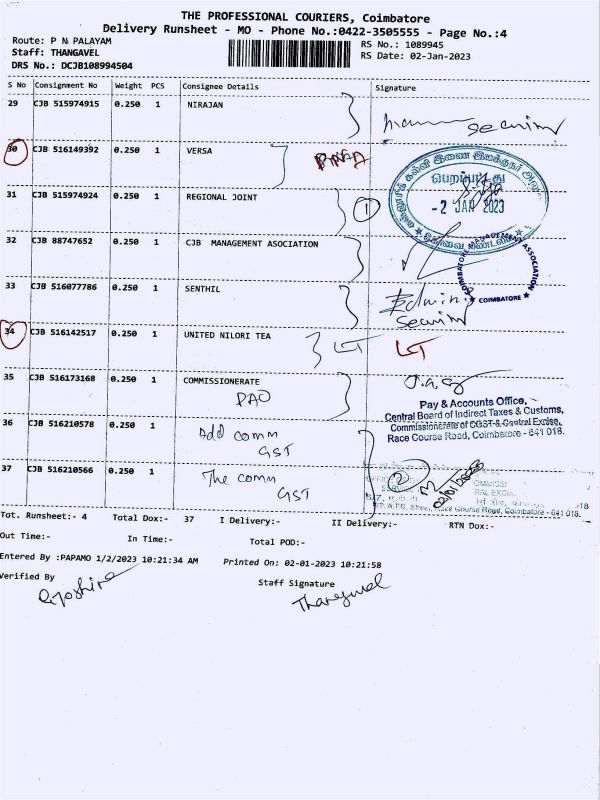 THE PROFESSIONAL COURIERS, Coimbatore
Delivery Runsheet - MO - Phone No.:0422-3505555 - Page No.:4
Route: P N PALAYAM
RS No.: 1089945
Staff: THANGAVEL
RS Date: 02-Jan-2023
DRS No.: DCJB108994504
S No Consignment No Weight PCS Consignee Details Signature
29 CJB 515974915 0.250 1 NIRAJAN
security
30 CJB 516149392 0.250 1 VERSA
பெறப்பட்டது
- 2 JAN 2023
31 CJB 515974924 0.250 1 REGIONAL JOINT 1
32 CJB 88747652 0.250 1 CJB MANAGEMENT ASOCIATION
COIMBATORE MANAGEMENT ASSOCIATION
★ COIMBATORE ★
33 CJB 516077786 0.250 1 SENTHIL
Security
34 CJB 516142517 0.250 1 UNITED NILORI TEA LT LT
35 CJB 516173168 0.250 1 COMMISSIONERATE
PAO
Pay & Accounts Office,
Central Board of Indirect Taxes & Customs,
Commissionerate of CGST & Central Excise,
Race Course Road, Coimbatore - 641 018.
36 CJB 516210578 0.250 1 Add comm
GST
37 CJB 516210566 0.250 1 The comm
GST
2
02/01/2023
Race Course Road, Coimbatore - 641 018.
Tot. Runsheet:- 4 Total Dox:- 37 I Delivery:- II Delivery:- RTN Dox:-
Out Time:- In Time:- Total POD:-
Entered By :PAPAMO 1/2/2023 10:21:34 AM Printed On: 02-01-2023 10:21:58
Verified By Staff Signature
Thangavel